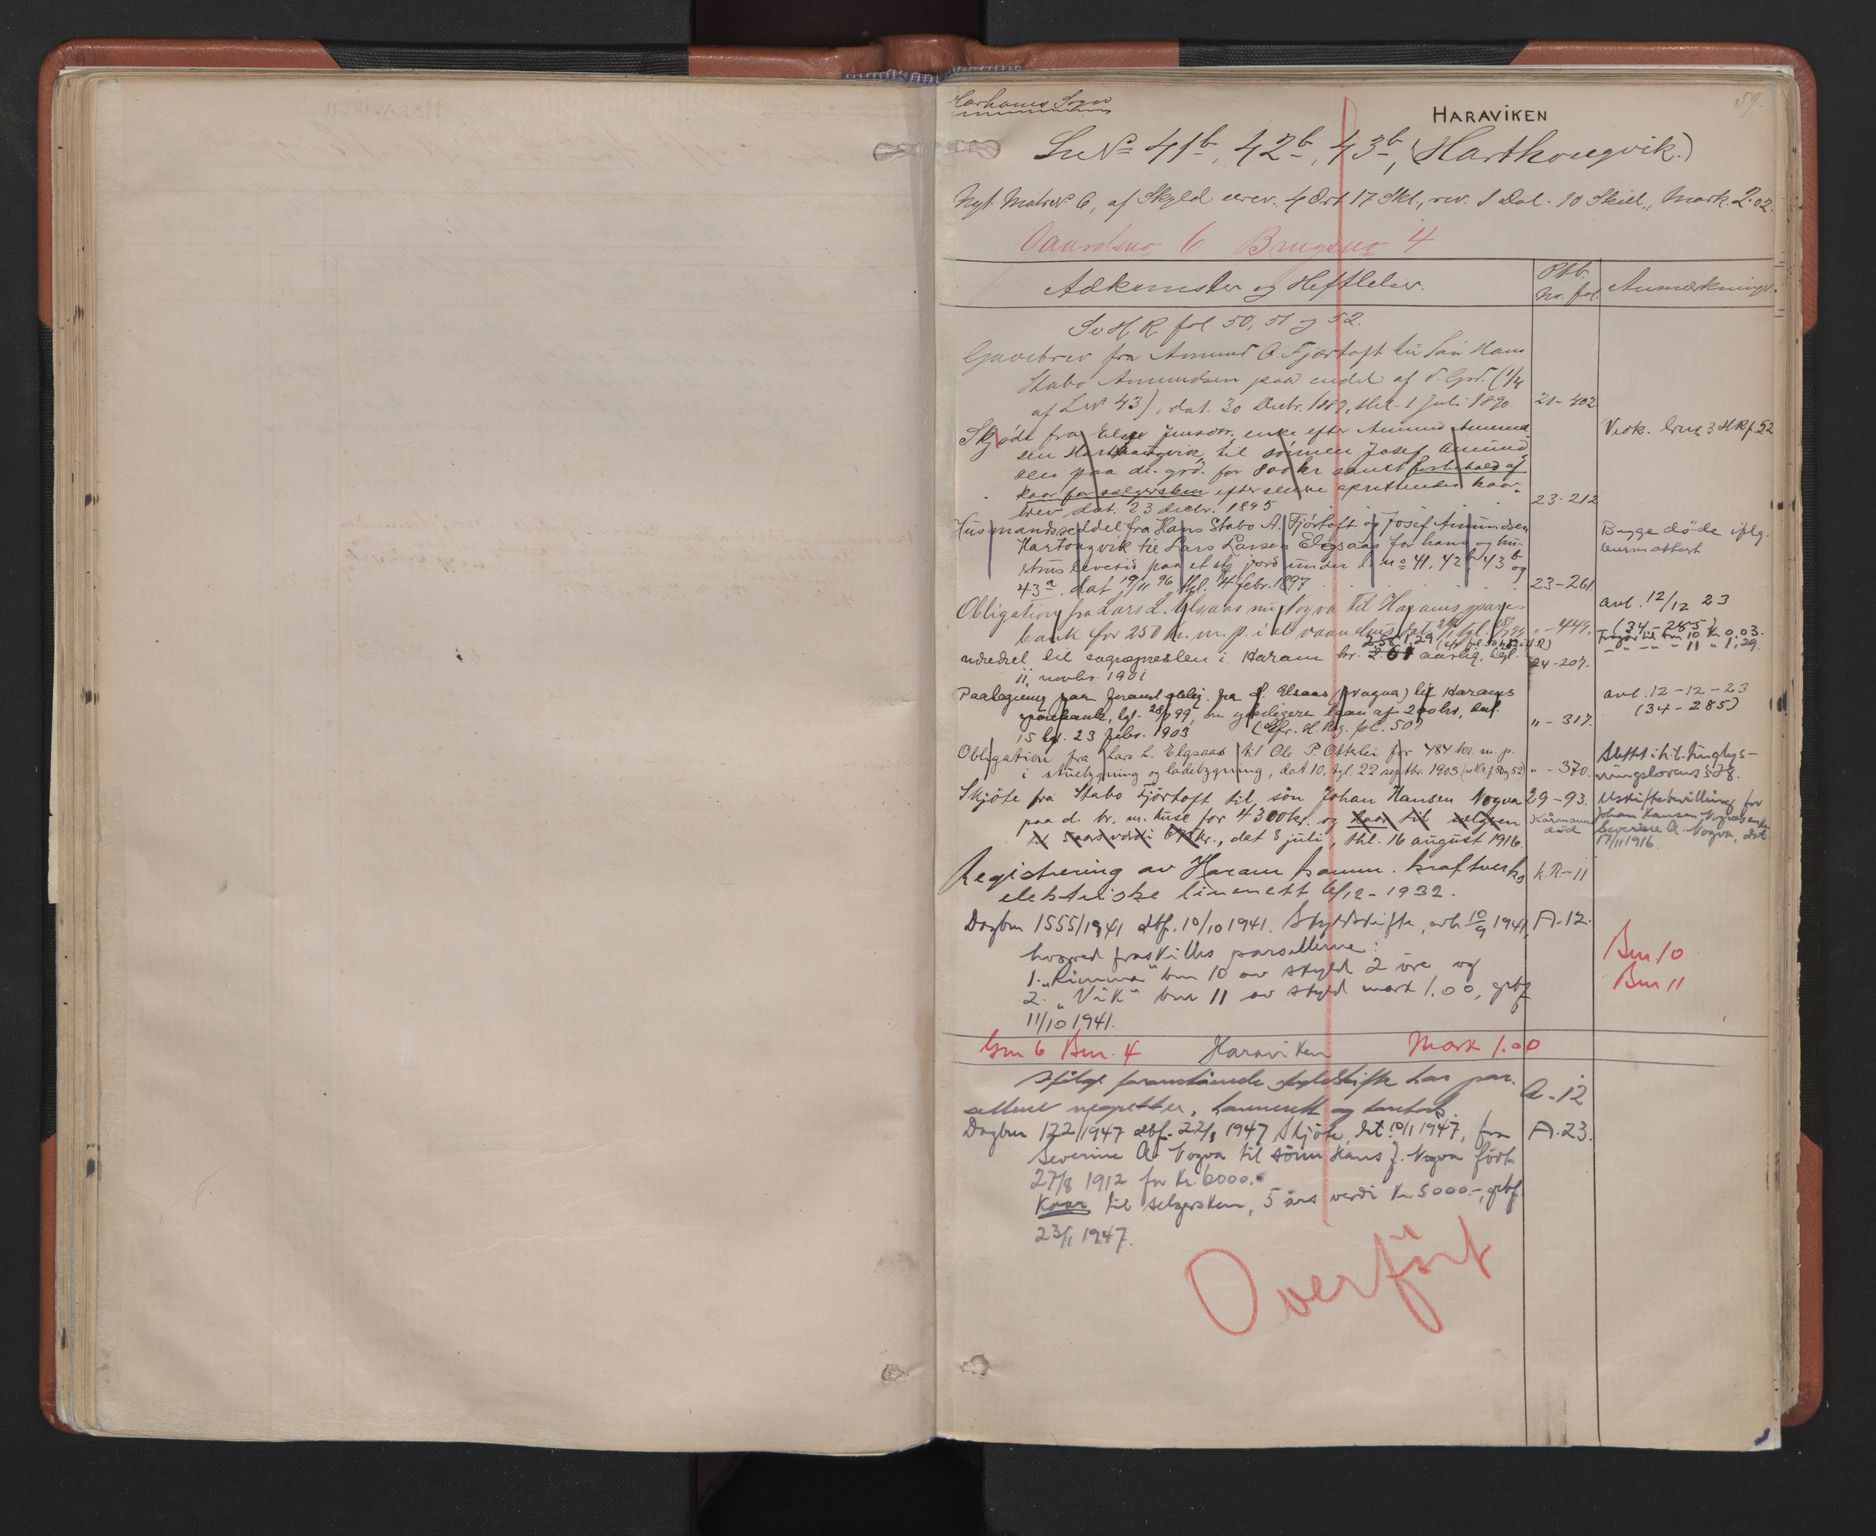 59.
Harhams Sogn
HARAVIKEN
Lu No 41b, 42b, 43b, (Harthougvik.)
Nyt Matr No 6, af Skyld urev. 4 Ort 17 Skl., rev. 1 Dal. 10 Skill., Mark 2.02.
Gaardsno 6 Brugsno 4
Adkomster og Heftelser. Ptb. No. fol. Anmærkninger
Se H. R. fol. 50, 51 og 52.
Gavebrev fra Amund A. Fjørtoft til Søn Hans
Stabo Amundsen paa endel af d. Grd. (1/4
af L No 43), dat. 30 Decbr. 1889, thl. 1 Juli 1890 21-402
Skjøde fra Jensdtr. enke efter Amund Amund-
sen til sønnen Josef Amund-
sen paa dl. grd. for 800 kr samt forbehold af
kaar for sælgersken efter denne oprettende kaar-
brev dat. 23 decbr. 1895 23-212
Vedk. brug 3 HRf. 52
Husmandsseddel fra Hans Stabo A. Fjørtoft og Josef Amundsen
Hartougvik til Lars Larsen Elgsaas for ham og hu-
strus levetid paa et stk jord under L no 41, 42b, 43b og
43a. dat 19/11 96, thgl. 4 febr. 1897 23-261
Begge døde iflg.
Obligation fra Lars L. Elsaas nu Nogva til Harams spare-
bank for 250 kr. m. p. i et vaaningshus "-449.
avl. 12/12 23
(34-285)
udredsel til sognepresten i Haram kr. 2.61 aarlig, tgl. 24-207.
11 novbr. 1901
Fragår til bnr 10 Kr 0.03.
-"- -"- 11 " 1.29.
Paategning paa foranst. oblig. fra L. Elsaas (Nogva) til Harams
sparebank, tgl. 28/7 99, om yderligere laan af 200 kr, dat. "-317.
15 tgl. 23 febr. 1903 (Cfr. H. Reg. fol. 50)
avl. 12-12-23
(34-285)
Obligation fra Lars L. Elgsaas til Ole P. Otterlei for 484 kr. m. p.
i stuebygning og ladebygning, dat 10, tgl. 22 septbr. 1903 "-370.
Slettet i h. t. tinglys-
ningslovens § 28.
Skjøte fra Stabo Fjörtoft til sön Johan Hansen Nogva 29-93.
paa d. br. m. huse for 4300 kr. og kaar til selgeren Kårmann
5 aars verdi 675 kr., dat 3 juli, thl. 16 august 1916. död
Uskiftebevilling for
Johan Hansen Nogvas enke
Severine A. Nogva, dat
17/11 1916.
Registrering av Haram komm. kraftverks K.R-11
elektriske linenett 6/12-1932.
Dagbnr 1555/1941 dbf. 10/10 1941. Skyldskifte, avh 10/9 1941, A.12.
hvorved fraskilles parsellerne:
1. "Rimma" bnr 10 av skyld 2 öre og Bnr 10
2. "Vik" bnr 11 av skyld mark 1.00, grbf Bnr 11
11/10 1941.
Gnr 6 Bnr. 4 Haraviken Mark 1.00
Ifölge foranstående skyldskifte har par- A-12
sellene vegretter, havnerett og
Dagbnr 122/1947 dbf. 22/1 1947 Skjöte, dat 10/1 1947, fra A.23.
Severine A. Nogva til sönn Hans J. Nogva född
27/8 1912 for Kr 6000.-
Kaar til selgersken, 5 års verdi Kr. 5000.-, grbf.
23/1 1947.
Overfört